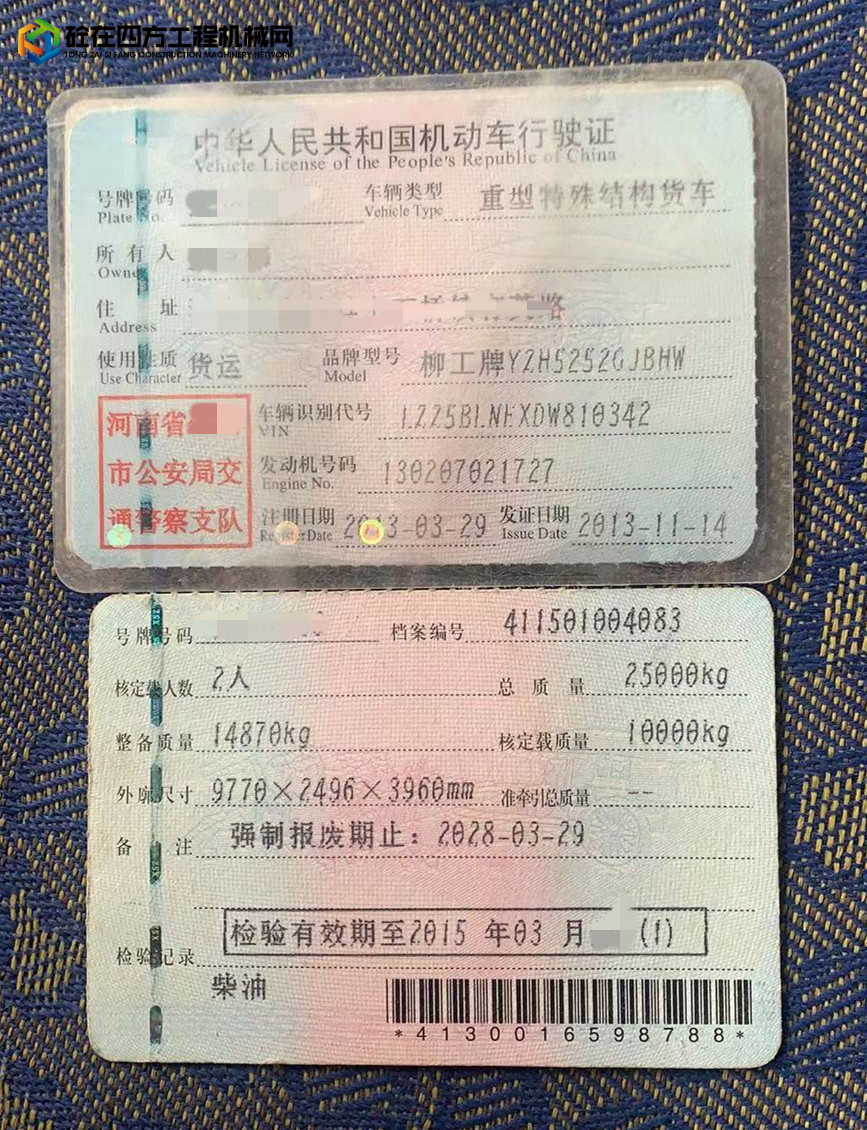 砼在四方工程机械网
TONG ZAI SI FANG CONSTRUCTION MACHINERY NETWORK
中华人民共和国机动车行驶证
Vehicle License of the People's Republic of China
号牌号码
Plate No.
车辆类型 重型特殊结构货车
Vehicle Type
所有人
Owner
住址
Address
使用性质 货运
Use Character
品牌型号 柳工牌YZH5252GJBHW
Model
河南省
市公安局交
通警察支队
车辆识别代号 LZZ5BLNEXDW810342
VIN
发动机号码 130207021727
Engine No.
注册日期 2013-03-29
Register Date
发证日期 2013-11-14
Issue Date
号牌号码
档案编号 411501004083
核定载人数 2人
总质量 25000kg
整备质量 14870kg
核定载质量 10000kg
外廓尺寸 9770×2496×3960mm
准牵引总质量 --
备注 强制报废期止：2028-03-29
检验记录 检验有效期至2015 年03 月 (1)
柴油
*4130016598788*